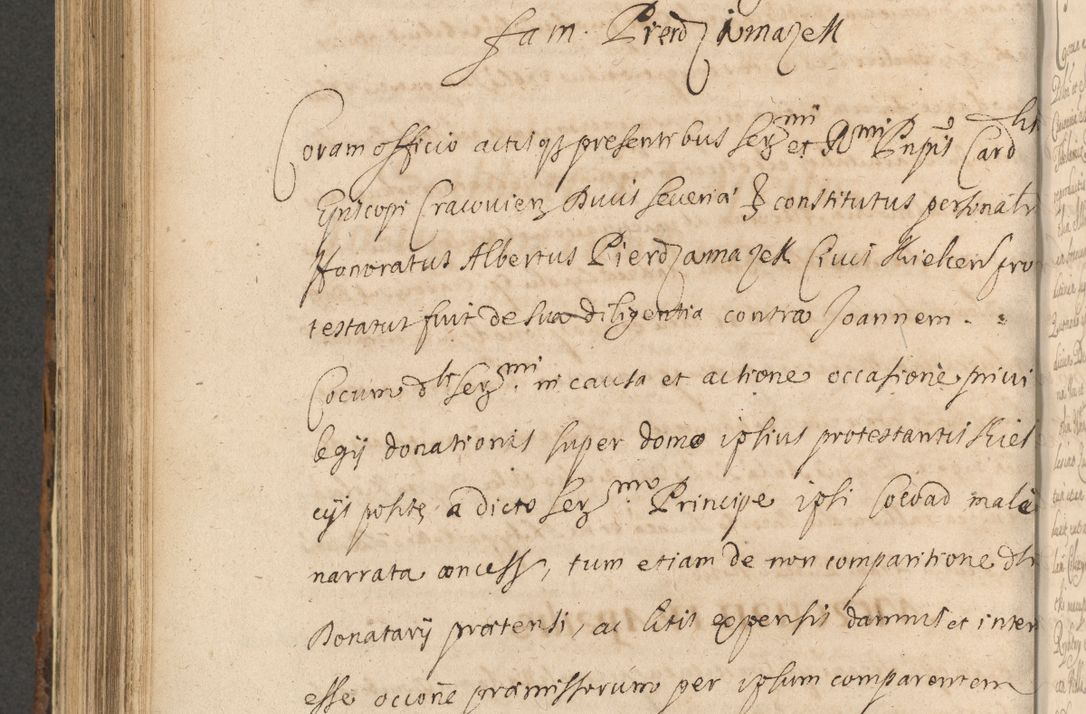 fam. Pierdzimazek
Coram officio actisq presentibus Serzmi et Rmi Pnpis Card
Episcopi Cracovien Ducis Severiae constitutus personalr
Honoratus Albertus Pierdzamazek Civis Kielcens pro
testatus fuit de sua diligentia contra Joannem
Cocum Serzmi in causa et actione occasione privi
legij donationis super domo ipsius protestantis Kiel
cys posite a dicto Serzmo Principe ipsi Coco ad male
narrata concess, tum etiam de non comparitione
Donatarij praetensi, ac litis expensis damnis et inter
esse occione praemissorum per ipsum comparentem